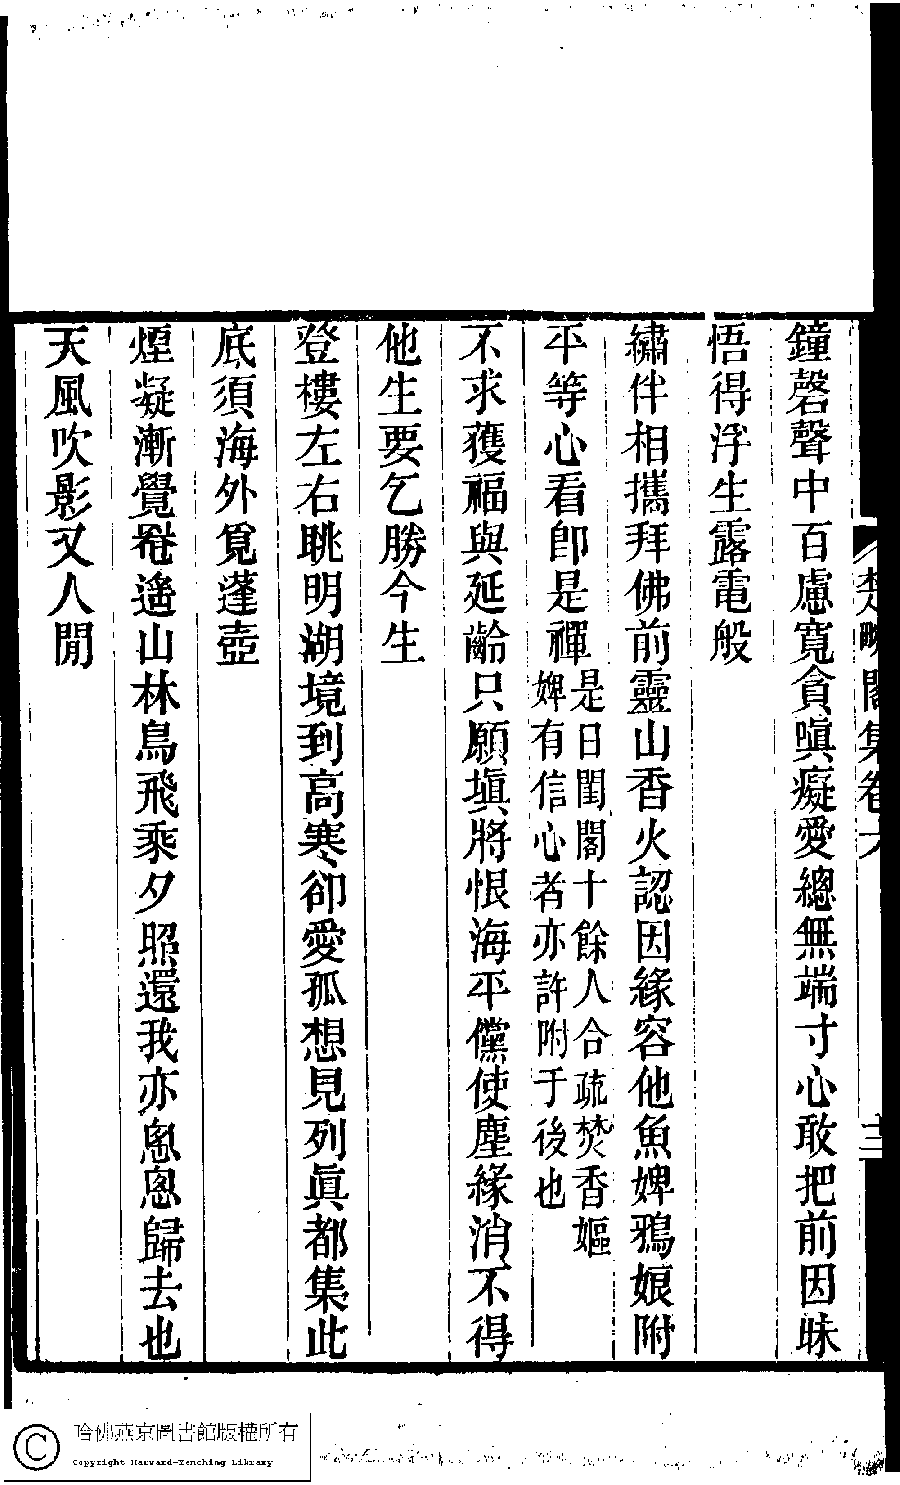 楚畹閣集卷六
十二
鐘磬聲中百慮寬貪嗔癡愛總無端寸心敢把前因昧
悟得浮生露電般
繡伴相攜拜佛前靈山香火認因緣容他魚婢鴉娘附
平等心看卽是禪是日閨閣十餘人合疏焚香嫗
婢有信心者亦許附于後也
不求獲福與延齡只願塡將恨海平儻使塵緣消不得
他生要乞勝今生
登樓左右眺明湖境到高寒卻愛孤想見列眞都集此
底須海外覓蓬壺
煙凝漸覺罨遙山林鳥飛乘夕照還我亦悤悤歸去也
天風吹影又人閒
哈佛燕京圖書館版權所有
Copyright Harvard-Yenching Library